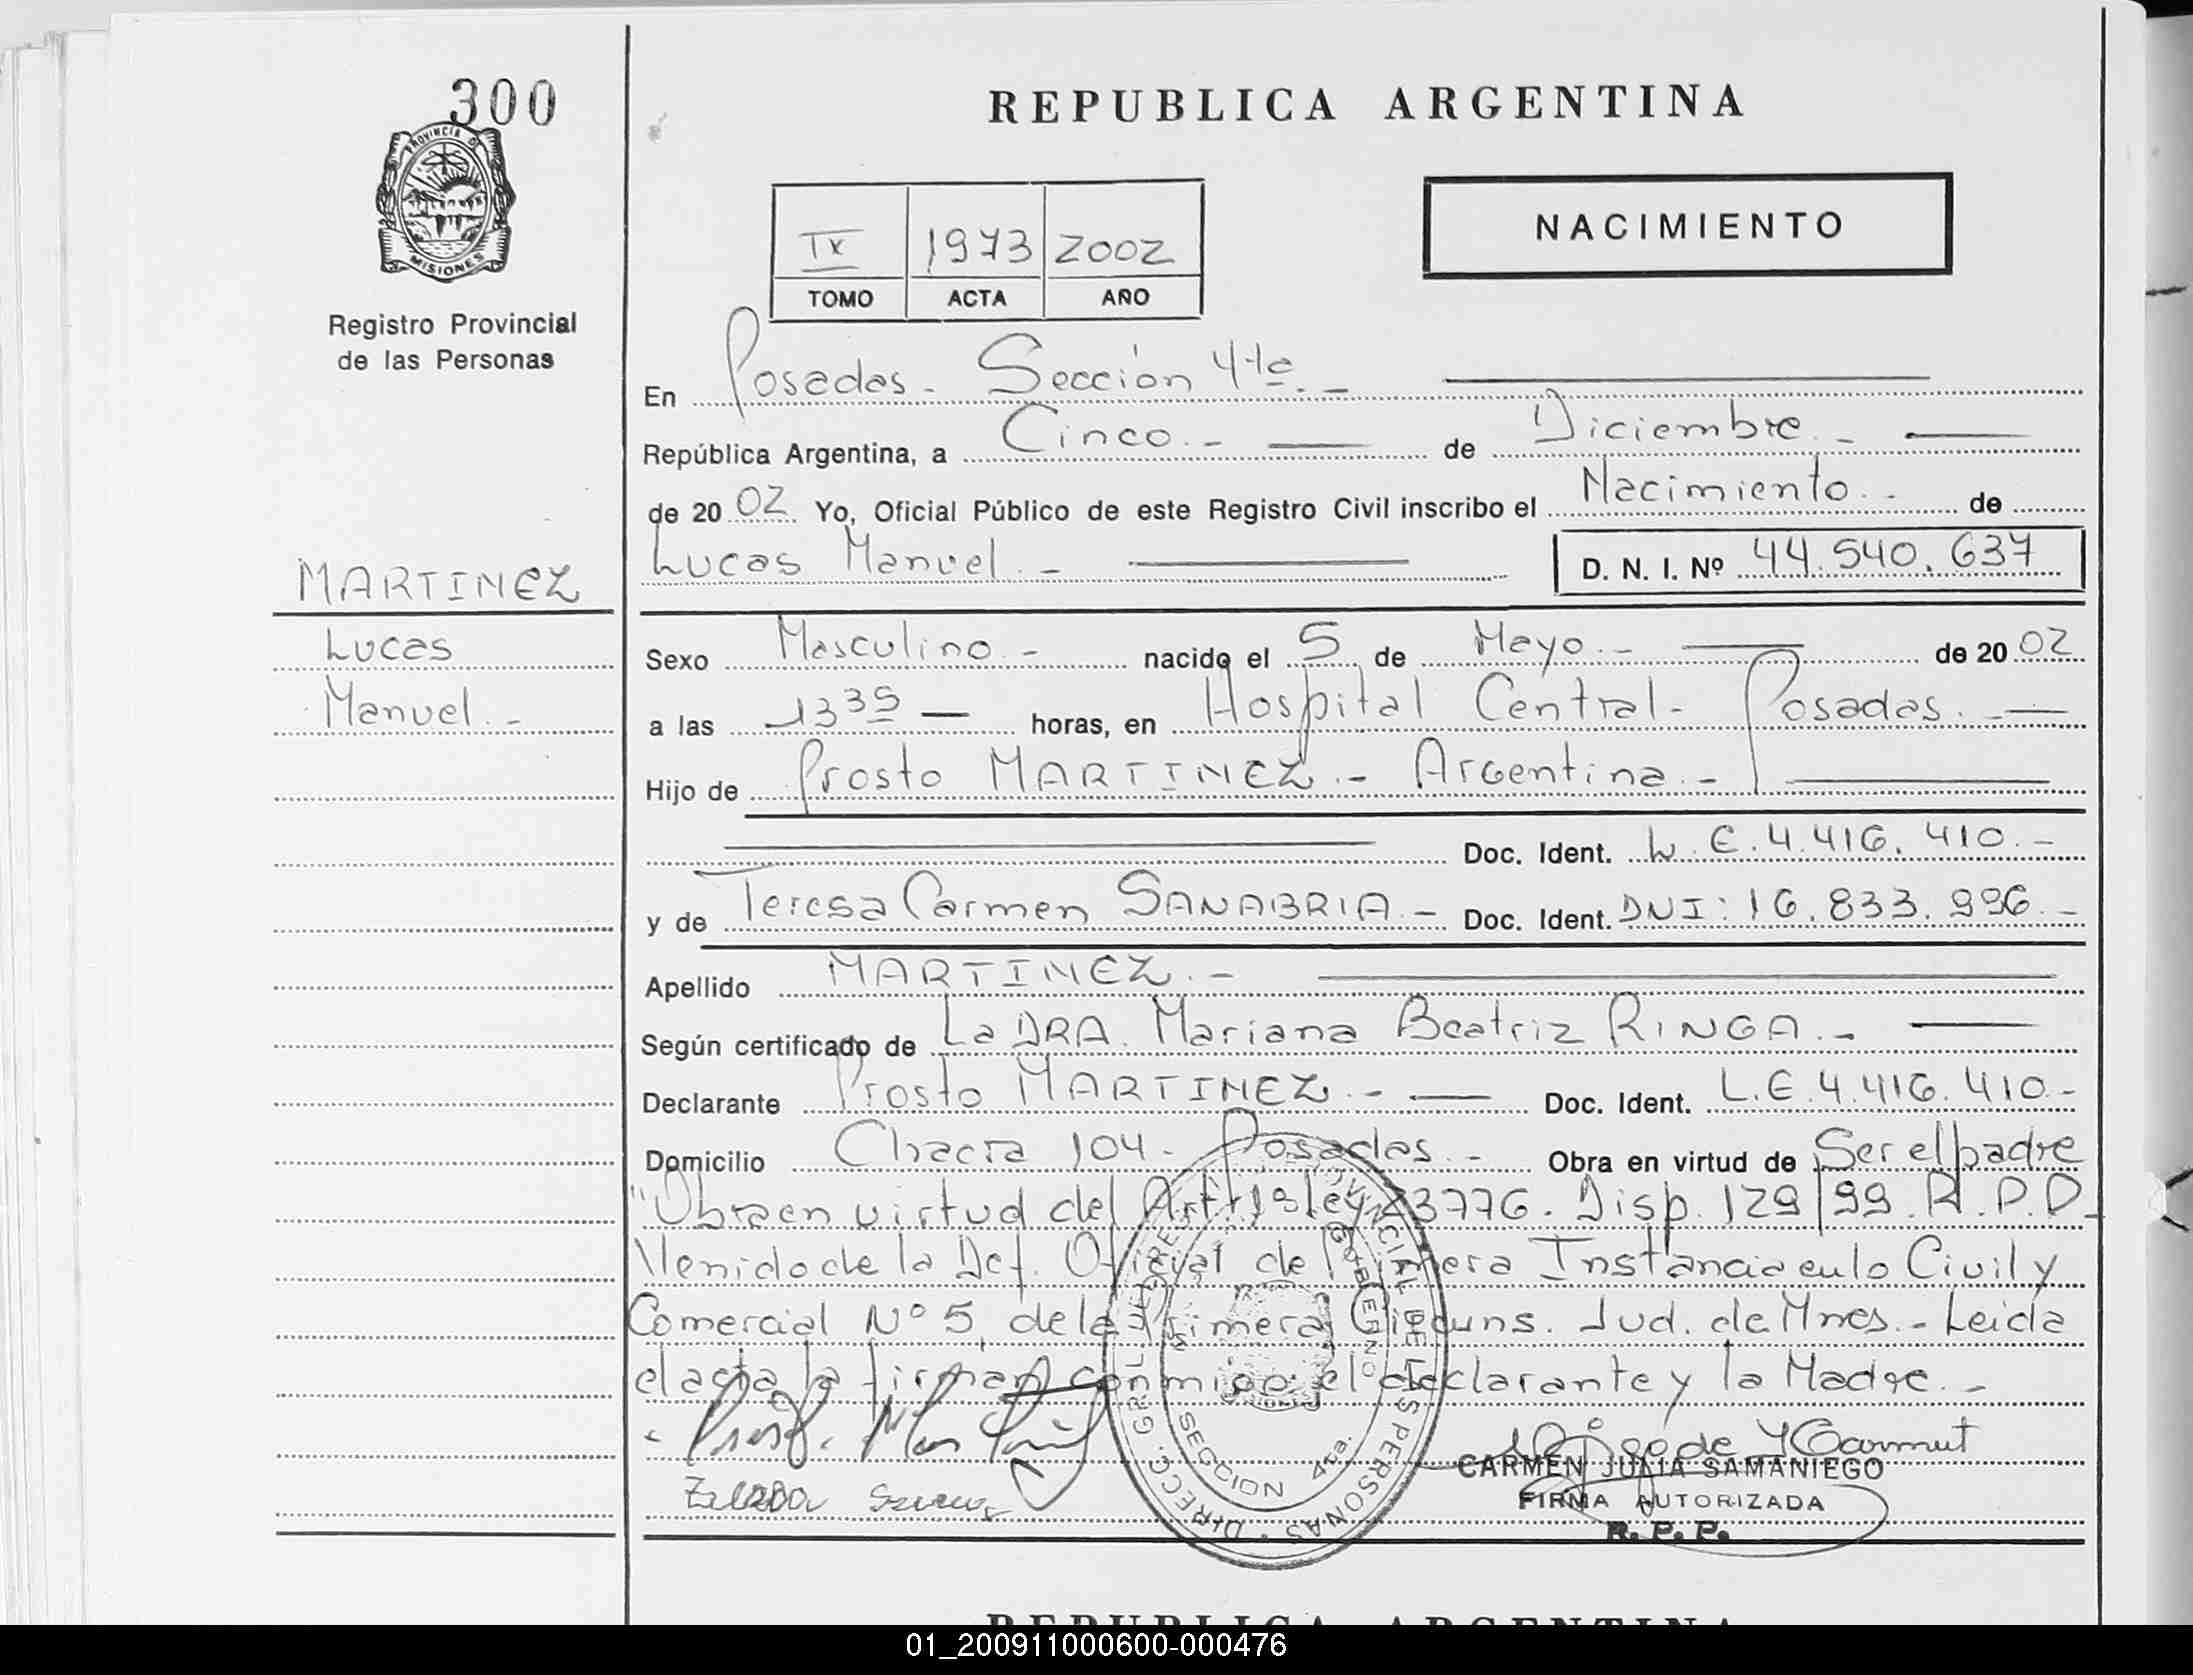 300
PROVINCIA DE
MISIONES
Registro Provincial
de las Personas
MARTINEZ
Lucas
Manuel.-
REPUBLICA ARGENTINA
NACIMIENTO
IX 1973 2002
TOMO ACTA AÑO
En Posadas - Sección 4ta.-
República Argentina, a Cinco.- de Diciembre.-
de 2002 Yo, Oficial Público de este Registro Civil inscribo el Nacimiento.- de
Lucas Manuel.- D. N. I. Nº 44.540.637
Sexo Masculino.- nacido el 5 de Mayo.- de 2002
a las 13 35 horas, en Hospital Central - Posadas.-
Hijo de Prosto MARTINEZ.- Argentina.-
Doc. Ident. L.E. 4.416.410.-
y de Teresa Carmen SANABRIA.- Doc. Ident. DNI: 16.833.996.-
Apellido MARTINEZ.-
Según certificado de La DRA. Mariana Beatriz RINGA.-
Declarante Prosto MARTINEZ.- Doc. Ident. L.E. 4.416.410.-
Domicilio Chacra 104 - Posadas.- Obra en virtud de Ser el padre
"Obra en virtud del Art 1 Ley 23776. Disp. 129/99. R.P.P.
Venido de la Def. Oficial de Primera Instancia en lo Civil y
Comercial Nº 5, de la Primera Circuns. Jud. de Mnes.- Leida
el acta la firman conmigo el declarante y la Madre.-
CARMEN JULIA SAMANIEGO
FIRMA AUTORIZADA
R. P. P.
SECCION 4ta.
REPUBLICA ARGENTINA
01_200911000600-000476